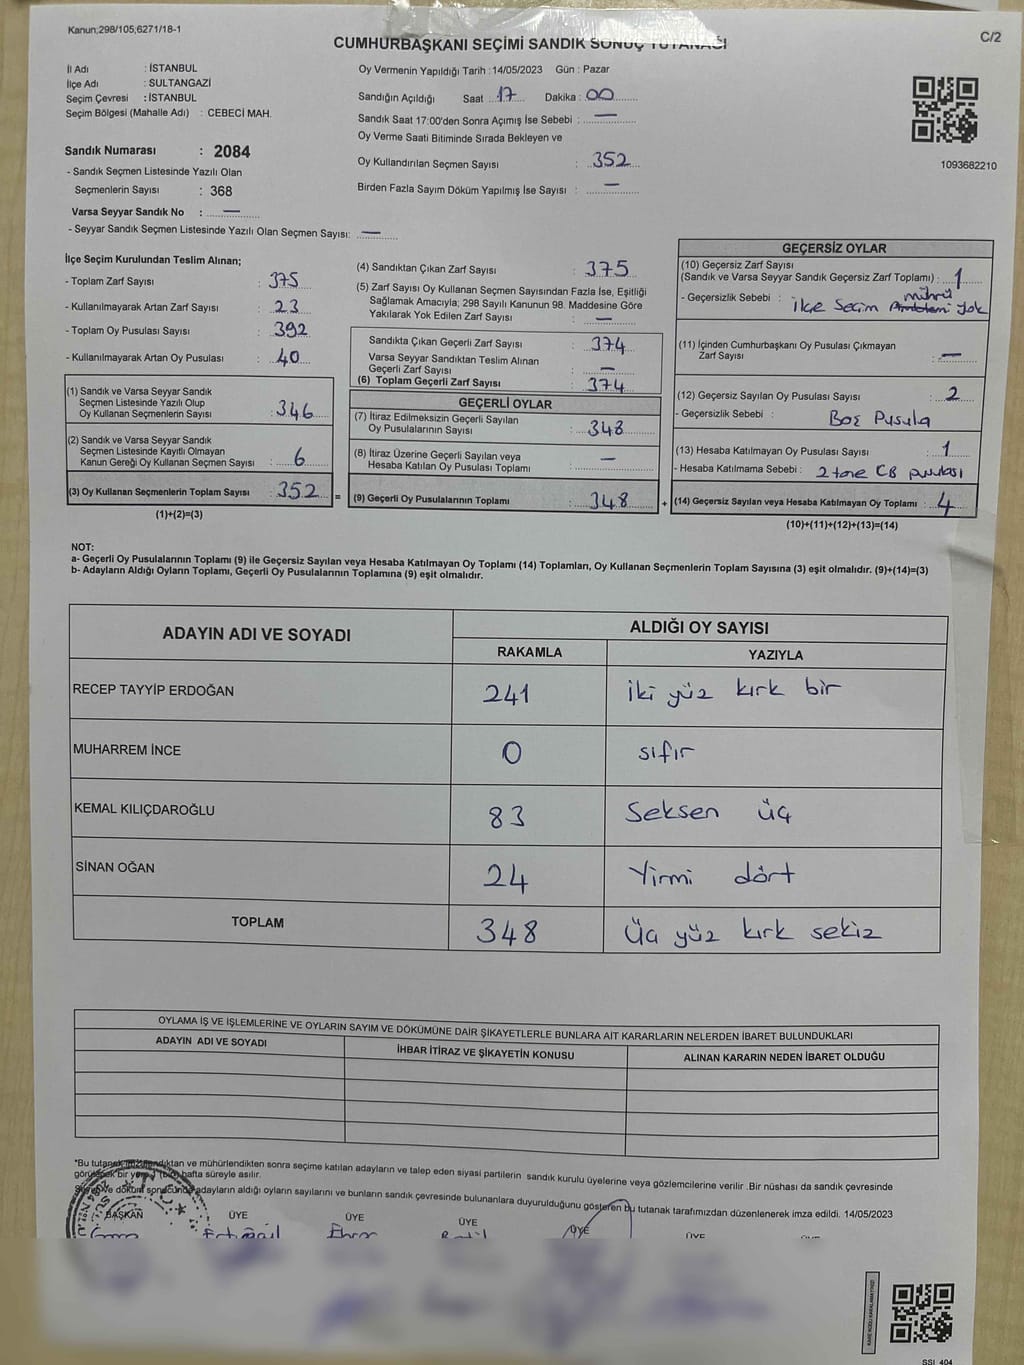 Kanun;298/105,6271/18-1
C/2
CUMHURBAŞKANI SEÇİMİ SANDIK SONUÇ TUTANAĞI
İl Adı : İSTANBUL
İlçe Adı : SULTANGAZİ
Seçim Çevresi : İSTANBUL
Seçim Bölgesi (Mahalle Adı) : CEBECİ MAH.
Sandık Numarası : 2084
- Sandık Seçmen Listesinde Yazılı Olan
Seçmenlerin Sayısı : 368
Varsa Seyyar Sandık No : —
- Seyyar Sandık Seçmen Listesinde Yazılı Olan Seçmen Sayısı: —
Oy Vermenin Yapıldığı Tarih : 14/05/2023 Gün : Pazar
Sandığın Açıldığı Saat 17 Dakika : 00
Sandık Saat 17:00'den Sonra Açımış İse Sebebi : —
Oy Verme Saati Bitiminde Sırada Bekleyen ve
Oy Kullandırılan Seçmen Sayısı : 352
Birden Fazla Sayım Döküm Yapılmış İse Sayısı : —
1093682210
İlçe Seçim Kurulundan Teslim Alınan;
- Toplam Zarf Sayısı : 375
- Kullanılmayarak Artan Zarf Sayısı : 23
- Toplam Oy Pusulası Sayısı : 392
- Kullanılmayarak Artan Oy Pusulası : 40
(1) Sandık ve Varsa Seyyar Sandık
Seçmen Listesinde Yazılı Olup
Oy Kullanan Seçmenlerin Sayısı : 346
(2) Sandık ve Varsa Seyyar Sandık
Seçmen Listesinde Kayıtlı Olmayan
Kanun Gereği Oy Kullanan Seçmen Sayısı : 6
(3) Oy Kullanan Seçmenlerin Toplam Sayısı : 352 =
(1)+(2)=(3)
(4) Sandıktan Çıkan Zarf Sayısı : 375
(5) Zarf Sayısı Oy Kullanan Seçmen Sayısından Fazla İse, Eşitliği
Sağlamak Amacıyla; 298 Sayılı Kanunun 98. Maddesine Göre
Yakılarak Yok Edilen Zarf Sayısı : —
Sandıkta Çıkan Geçerli Zarf Sayısı : 374
Varsa Seyyar Sandıktan Teslim Alınan
Geçerli Zarf Sayısı : —
(6) Toplam Geçerli Zarf Sayısı : 374
GEÇERLİ OYLAR
(7) İtiraz Edilmeksizin Geçerli Sayılan
Oy Pusulalarının Sayısı : 348
(8) İtiraz Üzerine Geçerli Sayılan veya
Hesaba Katılan Oy Pusulası Toplamı : —
(9) Geçerli Oy Pusulalarının Toplamı : 348 +
GEÇERSİZ OYLAR
(10) Geçersiz Zarf Sayısı
(Sandık ve Varsa Seyyar Sandık Geçersiz Zarf Toplamı) : 1
- Geçersizlik Sebebi : İlçe Seçim mührü yok
(11) İçinden Cumhurbaşkanı Oy Pusulası Çıkmayan
Zarf Sayısı : —
(12) Geçersiz Sayılan Oy Pusulası Sayısı : 2
- Geçersizlik Sebebi : Boş Pusula
(13) Hesaba Katılmayan Oy Pusulası Sayısı : 1
- Hesaba Katılmama Sebebi : 2 tane CB pusulası
(14) Geçersiz Sayılan veya Hesaba Katılmayan Oy Toplamı : 4
(10)+(11)+(12)+(13)=(14)
NOT:
a- Geçerli Oy Pusulalarının Toplamı (9) ile Geçersiz Sayılan veya Hesaba Katılmayan Oy Toplamı (14) Toplamları, Oy Kullanan Seçmenlerin Toplam Sayısına (3) eşit olmalıdır. (9)+(14)=(3)
b- Adayların Aldığı Oyların Toplamı, Geçerli Oy Pusulalarının Toplamına (9) eşit olmalıdır.
ADAYIN ADI VE SOYADI
ALDIĞI OY SAYISI
RAKAMLA YAZIYLA
RECEP TAYYİP ERDOĞAN 241 iki yüz kırk bir
MUHARREM İNCE 0 sıfır
KEMAL KILIÇDAROĞLU 83 Seksen üç
SİNAN OĞAN 24 Yirmi dört
TOPLAM 348 Üç yüz kırk sekiz
OYLAMA İŞ VE İŞLEMLERİNE VE OYLARIN SAYIM VE DÖKÜMÜNE DAİR ŞİKAYETLERLE BUNLARA AİT KARARLARIN NELERDEN İBARET BULUNDUKLARI
ADAYIN ADI VE SOYADI İHBAR İTİRAZ VE ŞİKAYETİN KONUSU ALINAN KARARIN NEDEN İBARET OLDUĞU
*Bu tutanak imzalandıktan ve mühürlendikten sonra seçime katılan adayların ve talep eden siyasi partilerin sandık kurulu üyelerine veya gözlemcilerine verilir .Bir nüshası da sandık çevresinde
görülecek bir yere 1 (bir) hafta süreyle asılır.
Sayım ve döküm sonucunda adayların aldığı oyların sayılarını ve bunların sandık çevresinde bulunanlara duyurulduğunu gösteren bu tutanak tarafımızdan düzenlenerek imza edildi. 14/05/2023
BAŞKAN ÜYE ÜYE ÜYE ÜYE ÜYE
SSI_404